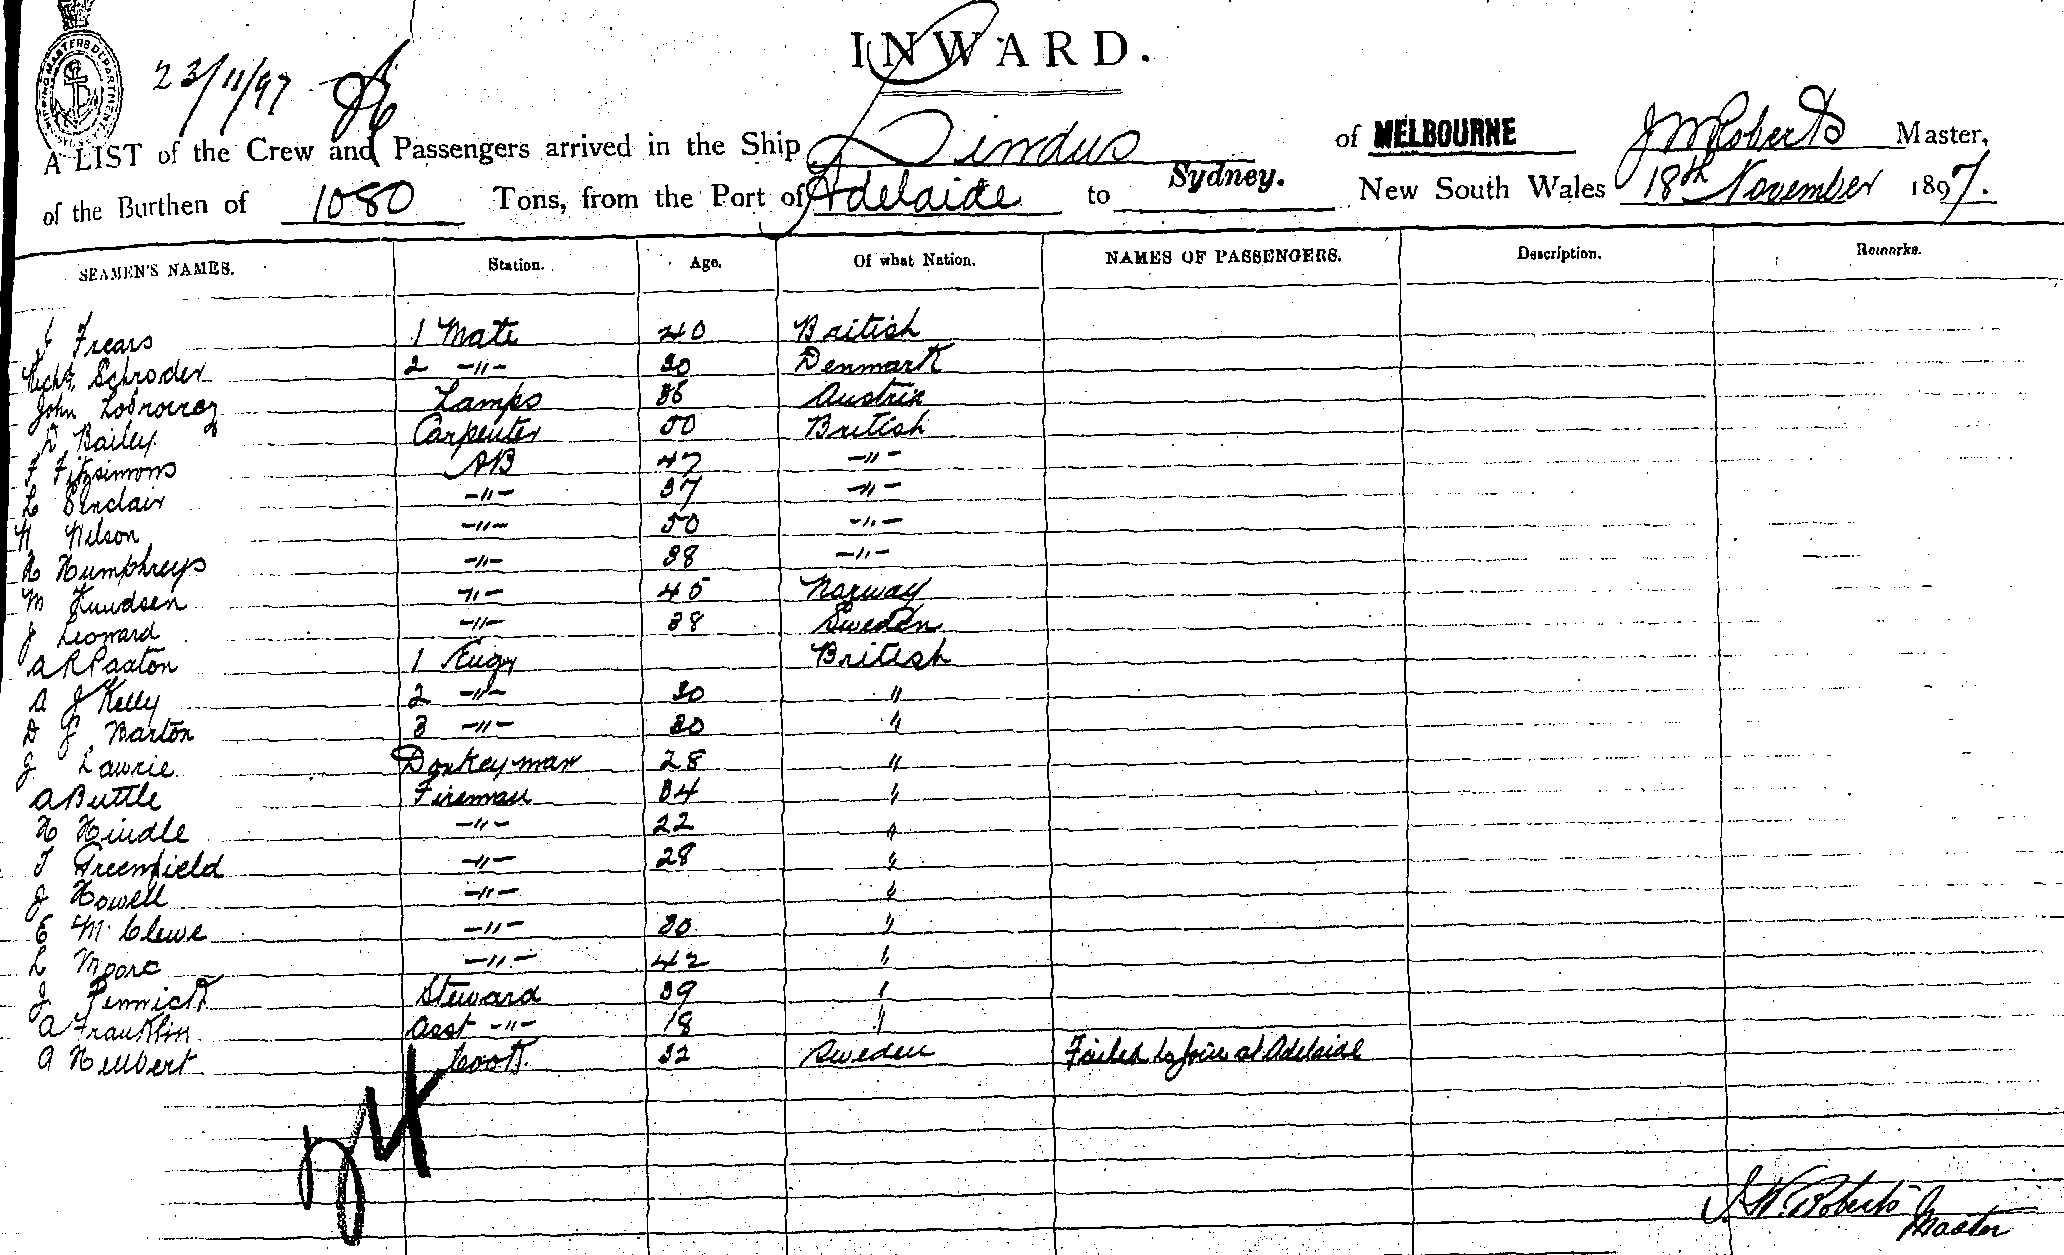 INWARD.
SHIPPING MASTERS DEPARTMENT
23/11/97
A LIST of the Crew and Passengers arrived in the Ship Dindus of MELBOURNE J M Roberts Master,
of the Burthen of 1080 Tons, from the Port of Adelaide to Sydney. New South Wales 18th November 1897.
SEAMEN'S NAMES. Station. Age. Of what Nation. NAMES OF PASSENGERS. Description. Remarks.
J Frears 1 Mate 40 British
Schroder 2 -"- 30 Denmark
John Lamps 36 Austria
D Bailey Carpenter 50 British
F Fitzsimons AB 47 -"-
L Sinclair -"- 37 -"-
N Nilson -"- 50 -"-
H Humphreys -"- 38 -"-
M Knudsen -"- 45 Norway
J Leonard -"- 38 Sweden
A R Paxton 1 Engr British
A J Kelly 2 -"- 30 "
D J Barton 3 -"- 30 "
J Lawrie Donkeyman 28 "
A Buttle Fireman 34 "
H Hindle -"- 22 "
T Greenfield -"- 28 "
J Howell -"- "
E McClewe -"- 30 "
L Moore -"- 42 "
J Pennick Steward 39 "
A Franklin Asst -"- 18 "
A Helbert Cook 32 Sweden Failed to join at Adelaide
J. W. Roberts
Master